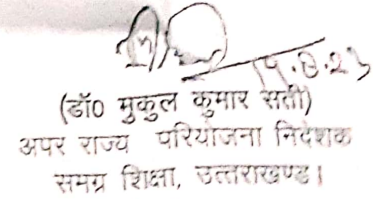 19.8.23
(डॉ0 मुकुल कुमार सती)
अपर राज्य परियोजना निदेशक
समग्र शिक्षा, उत्तराखण्ड।